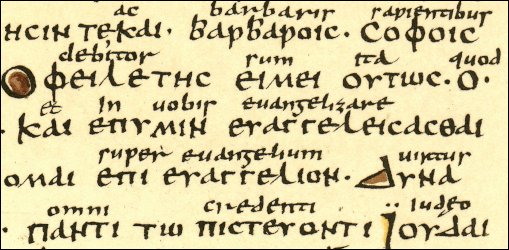 ac barbaris sapientibus
ΗϹΙΝ ΤΕΚΑΙ· ΒΑΡΒΑΡΟΙϹ· ϹΟΦΟΙϹ
debitor sum ita quod
ΟΦΕΙΛΕΤΗϹ ΕΙΜΕΙ ΟΥΤΩϹ· Ο·
et in uobis euangelizare
· ΚΑΙ ΕΠΥΜΙΝ ΕΥΑΓΓΕΛΕΙϹΑϹΘΑΙ
super euangelium uirtus
ΟΜΑΙ ΕΠΙ ΕΥΑΓΓΕΛΙΟΝ· ΔΥΝΑ
omni credenti iudeo
· ΠΑΝΤΙ ΤΩ ΠΙϹΤΕΥΟΝΤΙ ΪΟΥΔΑΙ